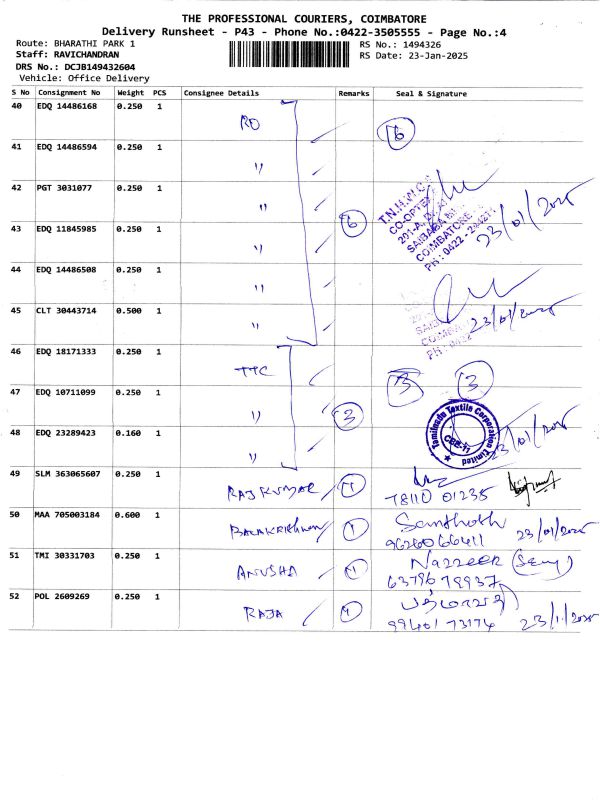 THE PROFESSIONAL COURIERS, COIMBATORE
Delivery Runsheet - P43 - Phone No.:0422-3505555 - Page No.:4
Route: BHARATHI PARK 1
RS No.: 1494326
Staff: RAVICHANDRAN
RS Date: 23-Jan-2025
DRS No.: DCJB149432604
Vehicle: Office Delivery
S No Consignment No Weight PCS Consignee Details Remarks Seal & Signature
40 EDQ 14486168 0.250 1 RO 6
41 EDQ 14486594 0.250 1 "
42 PGT 3031077 0.250 1 "
43 EDQ 11845985 0.250 1 " 6
T.N.H.W.C.S
CO-OPTEX
COIMBATORE
23/01/2025
44 EDQ 14486508 0.250 1 "
45 CLT 30443714 0.500 1 " 23/01/2025
46 EDQ 18171333 0.250 1 TTC 3 3
47 EDQ 10711099 0.250 1 " 3
Tamilnadu Textile Corporation Limited
CBE-11
23/01/2025
48 EDQ 23289423 0.160 1 "
49 SLM 363065607 0.250 1 RAJKUMAR 1 78110 01235
50 MAA 705003184 0.600 1 BALAKRISHNAN 1 Santhosh
9626066411 23/01/2025
51 TMI 30331703 0.250 1 ANUSHA 1 Nazzeer
6379679937
52 POL 2609269 0.250 1 RAJA 1
99401 73174 23/1/2025